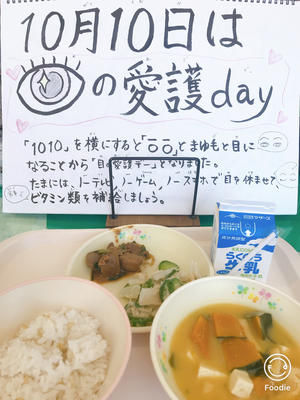 10月10日は
の愛護day
「1010」を横にすると「」とまゆもと目に
なることから「目の愛護デー」となりました。
たまには、ノーテレビ、ノーゲーム、ノースマホで目を休ませて、
ビタミン類を補給しましょう。
らくのう
牛乳
Foodie